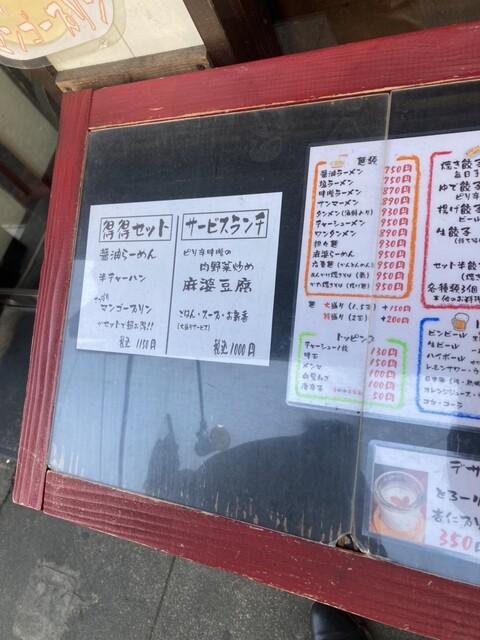 得得セット
醤油らーめん
半チャーハン
さっぱり
マンゴープリン
のセットで超お得!!
税込 1150円
サービスランチ
ピリ辛味噌の
肉野菜炒め
麻婆豆腐
ごはん・スープ・お新香
(大盛りサービス)
税込 1000円
麺類
醤油ラーメン 750円
塩ラーメン 750円
味噌ラーメン 870円
サンマーメン 890円
タンメン 930円
チャーシューメン 950円
ワンタンメン 890円
担々麺 930円
麻婆らーめん 950円
950円
950円
950円
麺 大盛り (1.5玉) +150円
特盛り (2玉) +200円
トッピング
チャーシュー1枚 130円
味玉 150円
メンマ 100円
白髪ねぎ 100円
50円
焼き餃子
ゆで餃子
揚げ餃子
生餃子
セット半餃子
各種類3個
ビンビール
生ビール
ハイボール
レモンサワー・
オレンジジュース・
コカ・コーラ
デザ
とろーり
杏仁プリ
350円